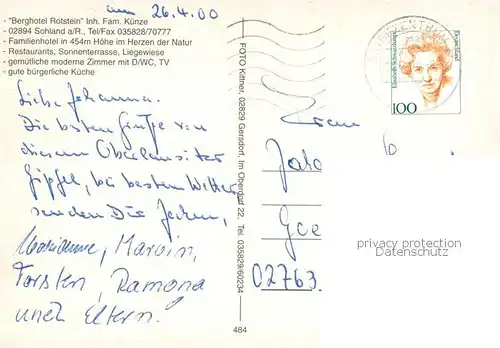 am 26.4.00
- "Berghotel Rotstein" Inh. Fam. Künze
- 02894 Sohland a/R., Tel/Fax 035828/70777
- Familienhotel in 454m Höhe im Herzen der Natur
- Restaurants, Sonnenterrasse, Liegewiese
- gemütliche moderne Zimmer mit D/WC, TV
- gute bürgerliche Küche
Liebe Johanna.
Die besten Grüße von
diesem Oberlausitzer
Gipfel, bei bestem Wetter,
senden Dir Jochen,
Marianne, Marvin,
Torsten, Ramona
und Eltern.
484
FOTO Kittner, 02829 Gersdorf, Im Oberdorf 22, Tel. 035829/60234
Frau
02763
Deutschland
Elisabeth Schwarzhaupt
100
privacy protection
Datenschutz